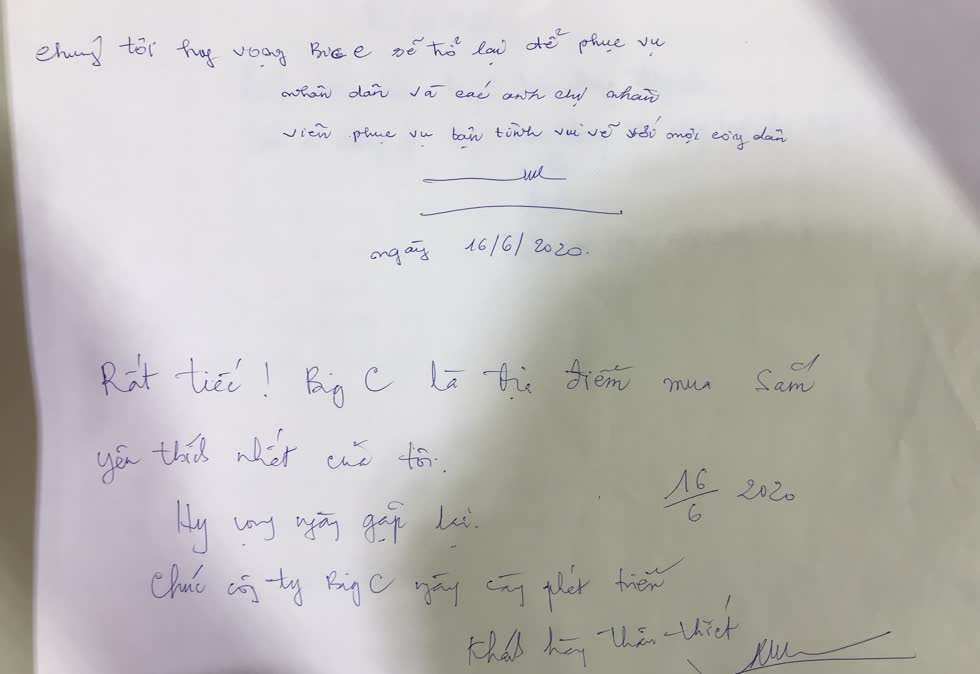 chúng tôi hy vọng Bic c sẽ trở lại để phục vụ
nhân dân và các anh chị nhân
viên phục vụ tận tình vui vẻ với mọi công dân
ngày 16/6/2020.
Rất tiếc! Big C là địa điểm mua sắm
yêu thích nhất của tôi.
16/6 2020
Hy vọng ngày gặp lại.
Chúc công ty Big C ngày càng phát triển
Khách hàng thân thiết